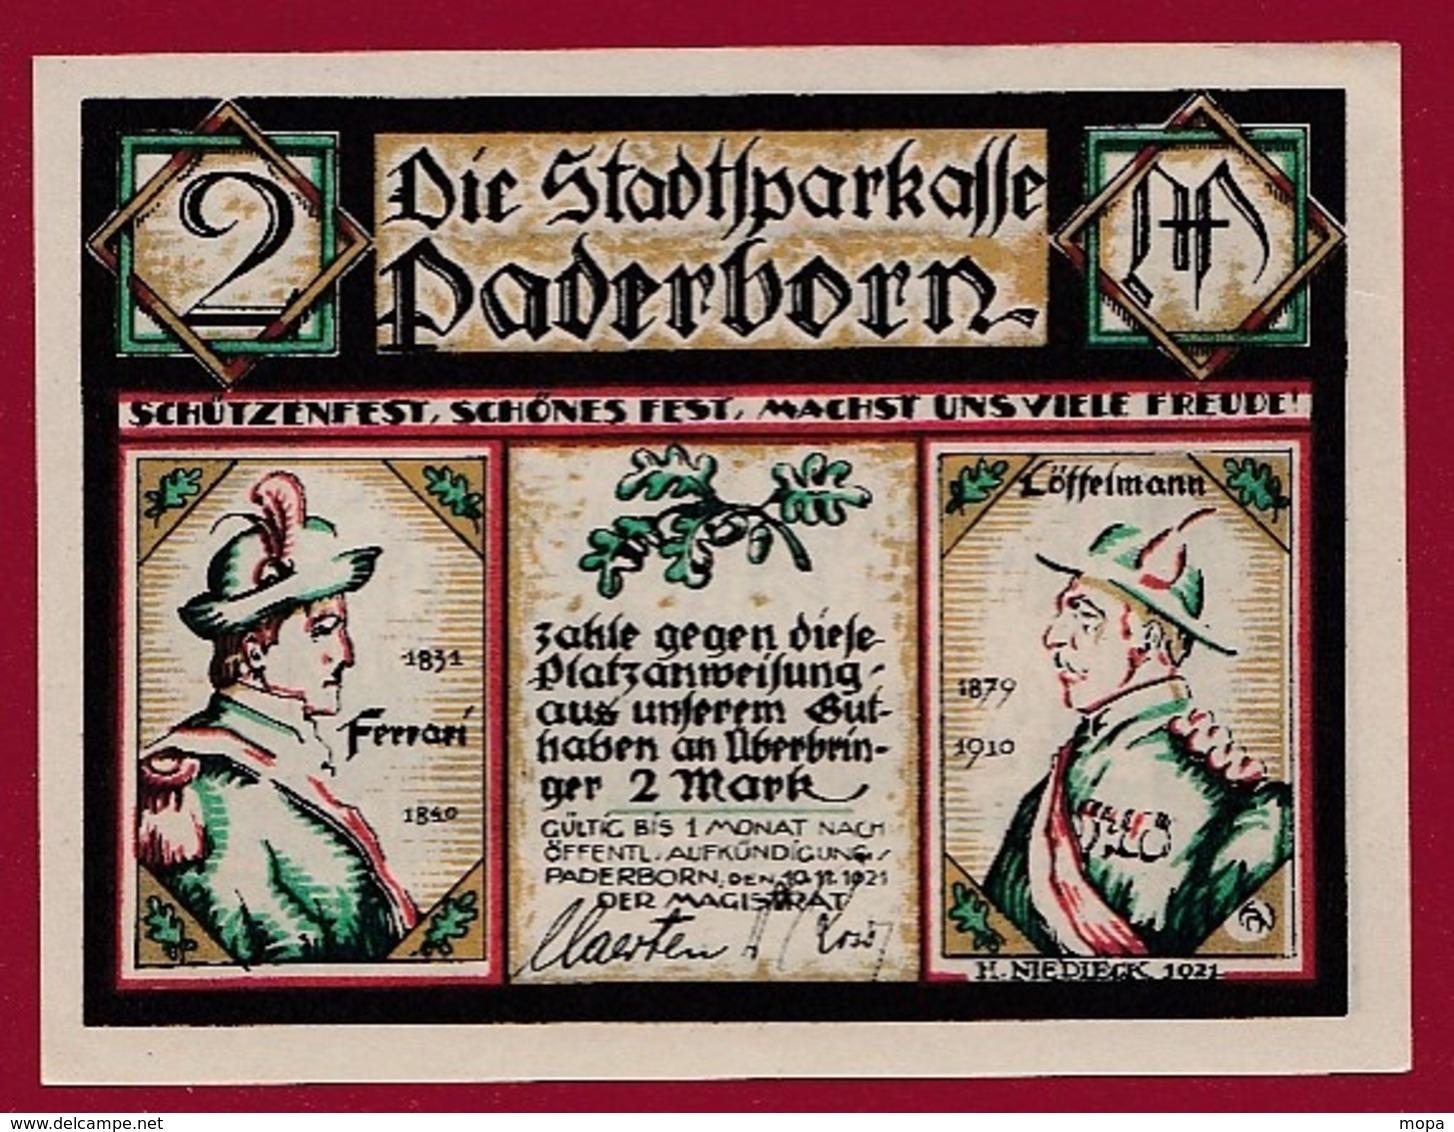 2
Die Stadtsparkasse
Paderborn
M
SCHÜTZENFEST, SCHÖNES FEST, MACHST UNS VIELE FREUDE!
1831
Ferrari
1840
zahle gegen diese
Platzanweisung
aus unserem Gut-
haben an Überbrin-
ger 2 Mark
GÜLTIG BIS 1 MONAT NACH
ÖFFENTL. AUFKÜNDIGUNG,
PADERBORN, DEN 10.11.1921
DER MAGISTRAT
Löffelmann
1879
1910
H. NIEDIECK 1921
delcampe.net
mopa